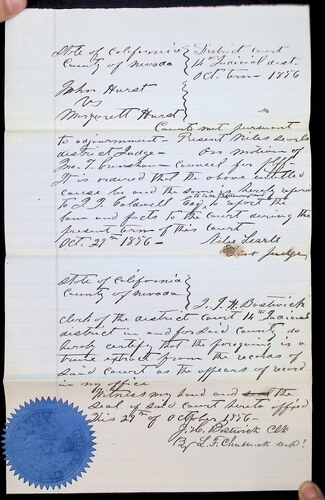 State of California } District Court
County of Nevada } 14th Judicial dist.
Oct term - 1856
John Hurst
vs
Margarett Hurst
Court met pursuant
to adjournment - Present Niles Searls
district Judge - On motion of
Jno. T. Crenshaw Counsel for plff-
It is ordered that the above entitled
cause be and the same is hereby referred
to J. I. Caldwell Esq. to report the
law and facts to the court during the
present term of this court
Oct. 29th 1856 - Niles Searls
Dist Judge
State of California }
County of Nevada } I. J. H. Bostwick
clerk of the district court 14th Judicial
district in and for said County do
hereby certify that the foregoing is a
true extract from the records of
said Court as the appears of record
in my office
Witness my hand and
the
seal of said Court hereto affixed
this 29th of October 1856-
J. H. Bostwick Clk
By L. F. dep.